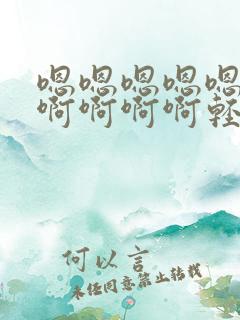 嗯嗯嗯嗯嗯
啊啊啊啊轻
何以言
未经同意禁止转载